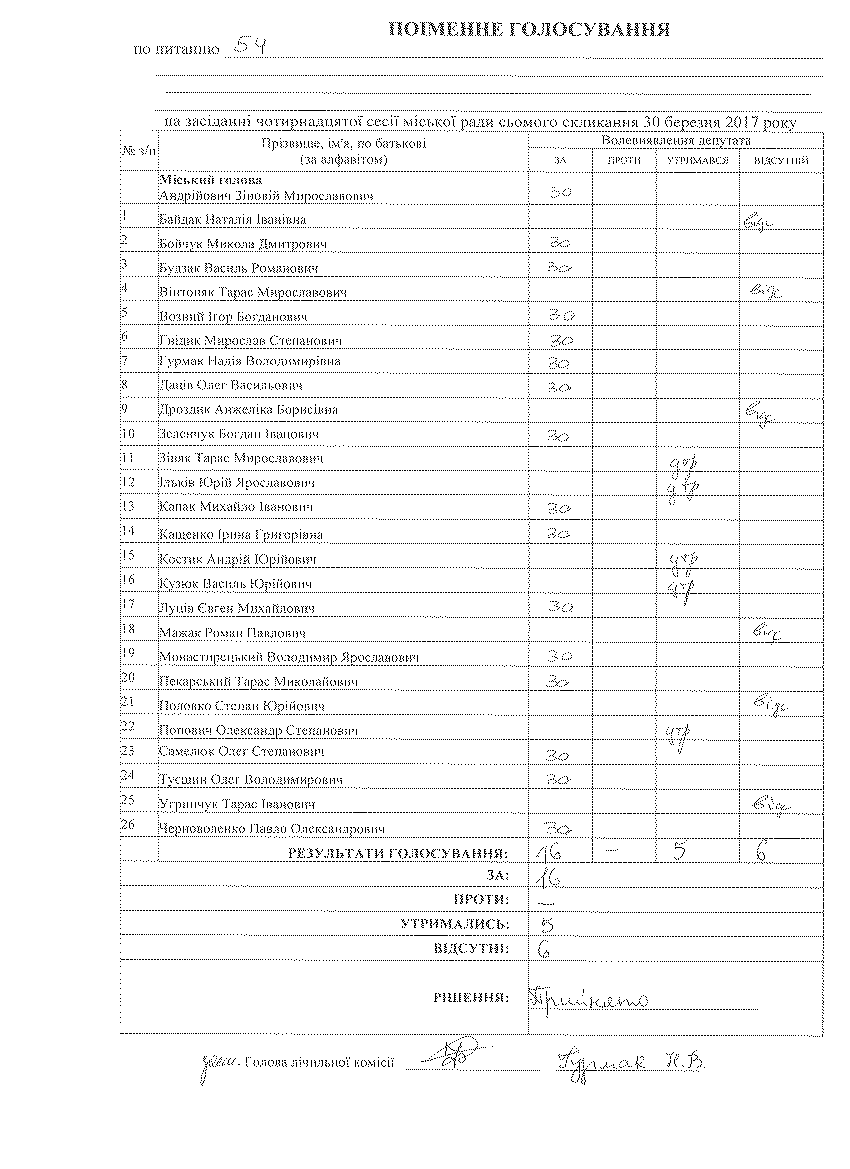 ПОІМЕННЕ ГОЛОСУВАННЯ
по питанню 54
на засіданні чотирнадцятої сесії міської ради сьомого скликання 30 березня 2017 року
№ з/п Прізвище, ім'я, по батькові (за алфавітом) Волевиявлення депутата
ЗА ПРОТИ УТРИМАВСЯ ВІДСУТНІЙ
Міський голова
Андрійович Зіновій Мирославович за
1 Байдак Наталія Іванівна відс
2 Бойчук Микола Дмитрович за
3 Будзак Василь Романович за
4 Вінтоняк Тарас Мирославович відс
5 Возний Ігор Богданович за
6 Гнідик Мирослав Степанович за
7 Гурмак Надія Володимирівна за
8 Даців Олег Васильович за
9 Дроздик Анжеліка Борисівна відс
10 Зеленчук Богдан Іванович за
11 Зіняк Тарас Мирославович утр
12 Ільків Юрій Ярославович утр
13 Капак Михайло Іванович за
14 Кащенко Ірина Григорівна за
15 Костик Андрій Юрійович утр
16 Кузюк Василь Юрійович утр
17 Луців Євген Михайлович за
18 Мажак Роман Павлович відс
19 Монастирецький Володимир Ярославович за
20 Пекарський Тарас Миколайович за
21 Половко Степан Юрійович відс
22 Попович Олександр Степанович утр
23 Самелюк Олег Степанович за
24 Тусшин Олег Володимирович за
25 Угринчук Тарас Іванович відс
26 Черноволенко Павло Олександрович за
РЕЗУЛЬТАТИ ГОЛОСУВАННЯ: 16 – 5 6
ЗА: 16
ПРОТИ: —
УТРИМАЛИСЬ: 5
ВІДСУТНІ: 6
РІШЕННЯ: Прийнято
Голова лічильної комісії Гурмак Н.В.